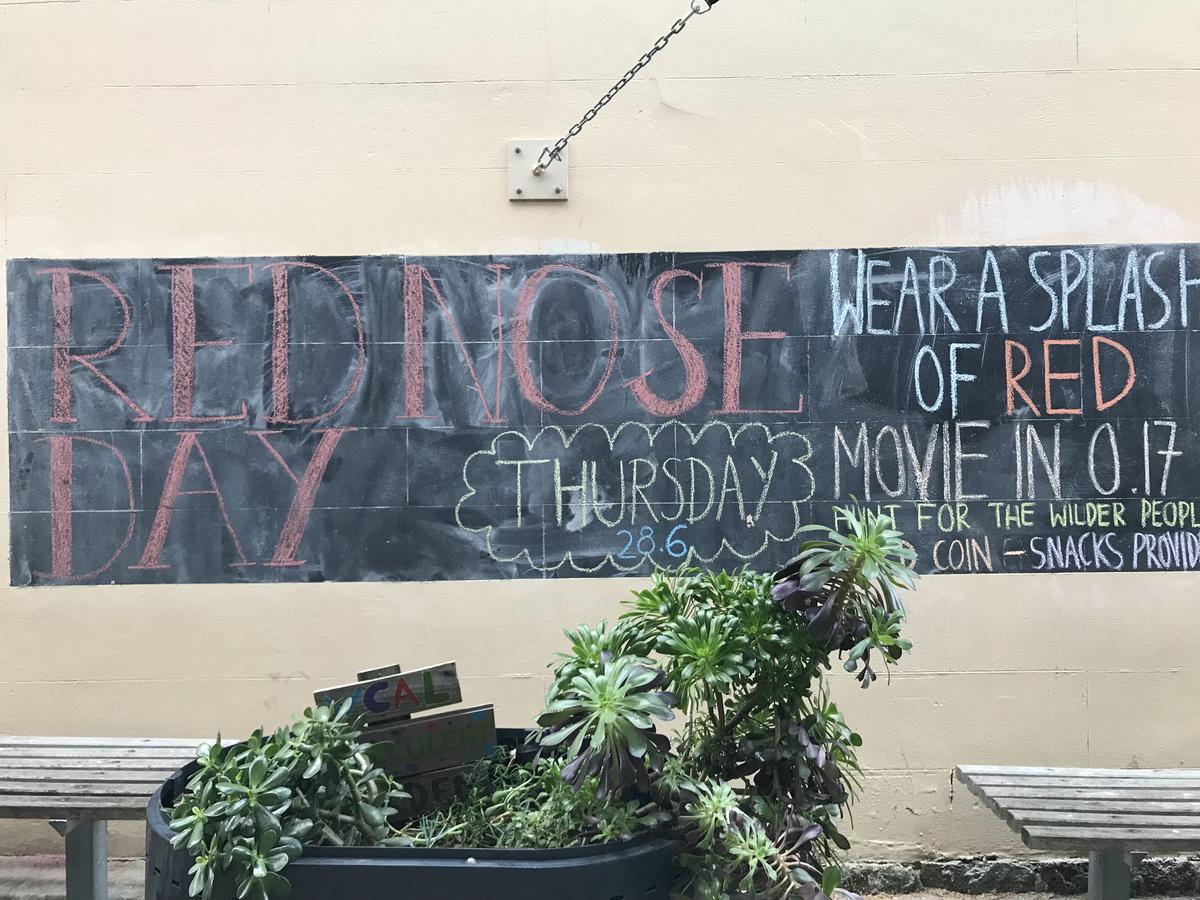 RED NOSE
DAY
THURSDAY
28.6
WEAR A SPLASH
OF RED
MOVIE IN O.17
HUNT FOR THE WILDER PEOPL
COIN – SNACKS PROVID